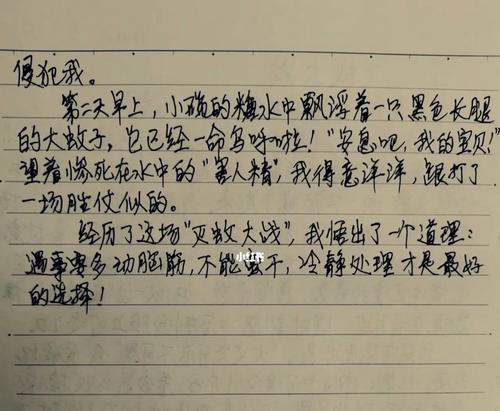 侵犯我。
第二天早上,小碗的糖水中飘浮着一只黑色长腿
的大蚊子,它已经一命乌呼啦!"安息吧,我的宝贝!"
望着惨死在水中的"害人精",我得意洋洋,跟打了
一场胜仗似的。
经历了这场"灭蚊大战",我悟出了一个道理:
遇事要多动脑筋,不能蛮干,冷静处理才是最好
的选择!
小红书